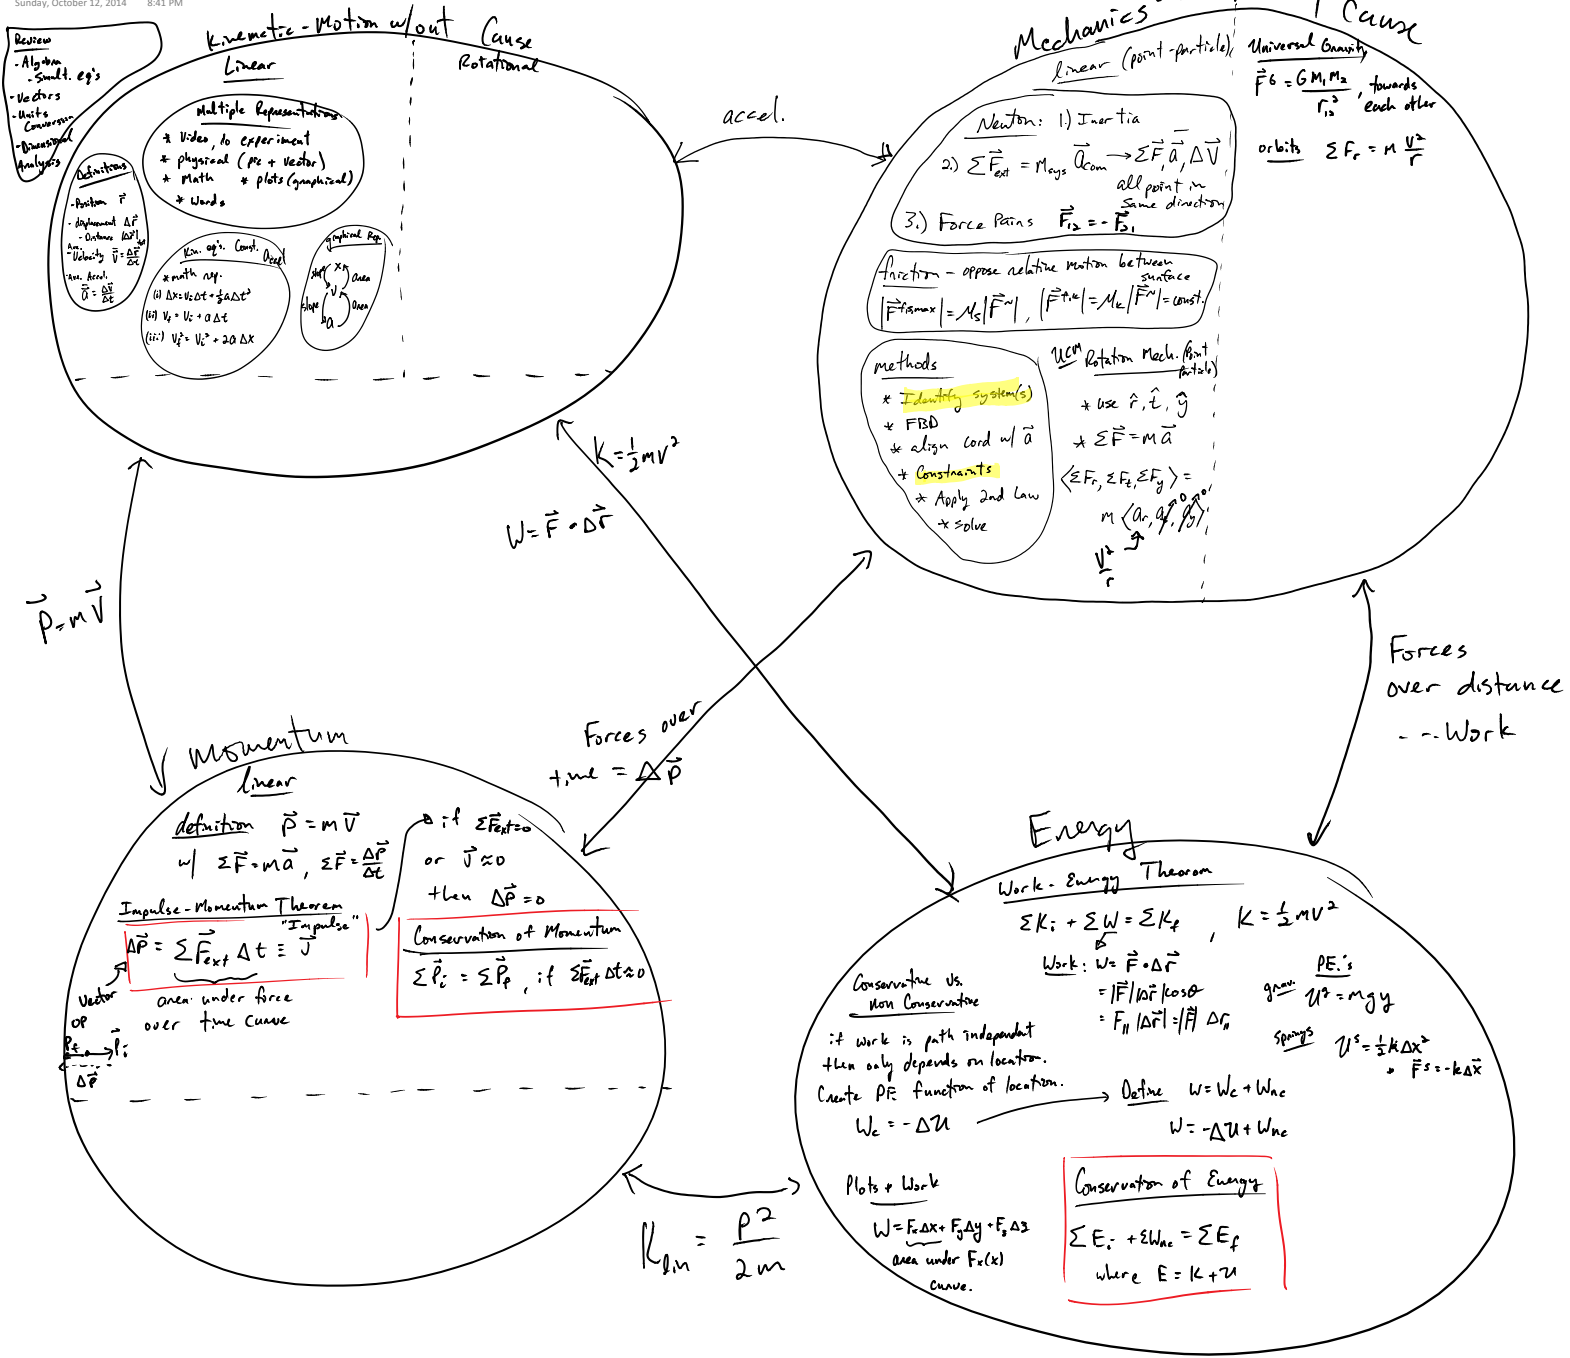 Sunday, October 12, 2014 8:41 PM
Review
- Algebra
- Simult. eq's
- Vectors
- Units Conversion
- Dimensional Analysis
Kinematic - Motion w/out Cause
Linear
Rotational
Multiple Representations
* Video, do experiment
* physical (pic + vector)
* Math * plots (graphical)
* Words
Definitions
- Position r⃗
- displacement Δr⃗
- Distance |Δr⃗|
Ave.
- Velocity v⃗ = Δr⃗/Δt
- Ave. Accel.
a⃗ = Δv⃗/Δt
Kin. eq's. Const. accel
* math rep.
(i) Δx = Vᵢ Δt + ½ a Δt²
(ii) V_f = Vᵢ + a Δt
(iii) V_f² = Vᵢ² + 2a Δx
graphical Rep.
x
slope area
v
slope area
a
accel.
Mechanics - Cause
linear (point-particle)
Newton: 1.) Inertia
2.) ΣF⃗ext = Msys a⃗com → ΣF⃗, a⃗, ΔV⃗
all point in
same direction
3.) Force Pairs F⃗₁₂ = - F⃗₂₁
friction - oppose relative motion between
surface
|F⃗ fs,max| = μs |F⃗ᴺ| , |F⃗ f,k| = μk |F⃗ᴺ| = const.
methods
* Identify system(s)
* FBD
* align cord w/ a⃗
* Constraints
* Apply 2nd Law
* solve
UCM Rotation Mech. (Point
particle)
* use r̂, t̂, ŷ
* ΣF⃗ = m a⃗
⟨ΣFr, ΣFt, ΣFy⟩ =
m ⟨ar, at, ay⟩
0 0
V²/r
Universal Gravity
F⃗ᴳ = G M₁ M₂ / r₁₂² , towards
each other
orbits ΣFr = m V²/r
K = ½ m v²
W = F⃗ • Δr⃗
P⃗ = m V⃗
Forces over
time = Δp⃗
Forces
over distance
- - - Work
Momentum
linear
definition P⃗ = m V⃗
w/ ΣF⃗ = m a⃗ , ΣF⃗ = Δp⃗/Δt
Impulse - Momentum Theorem
"Impulse"
Δp⃗ = ΣF⃗ext Δt ≡ J⃗
area under force
over time curve
Vector
op
P_f Pᵢ
Δp⃗
if ΣF⃗ext = 0
or J⃗ ≈ 0
then Δp⃗ = 0
Conservation of Momentum
Σp⃗ᵢ = Σp⃗_f , if ΣF⃗ext Δt ≈ 0
K lin = p²/2m
Energy
Work - Energy Theorem
ΣKᵢ + ΣW = ΣK_f , K = ½ m v²
Work : W = F⃗ • Δr⃗
= |F⃗| |Δr⃗| cosθ
= F∥ |Δr⃗| = |F⃗| Δr∥
PE.'s
grav. Uᵍ = mgy
springs Uˢ = ½ k Δx²
* F⃗ˢ = -k Δx⃗
Conservative vs.
non Conservative
if work is path independent
then only depends on location.
Create PE function of location.
Wc = - ΔU
Define W = Wc + Wnc
W = - ΔU + Wnc
Plots + Work
W = Fx Δx + Fy Δy + Fz Δz
area under Fx(x)
curve.
Conservation of Energy
ΣEᵢ + ΣWnc = ΣE_f
where E = K + U